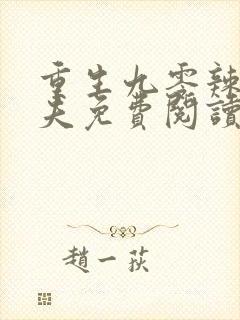 重生九零辣
夫免費閱讀
趙一荻